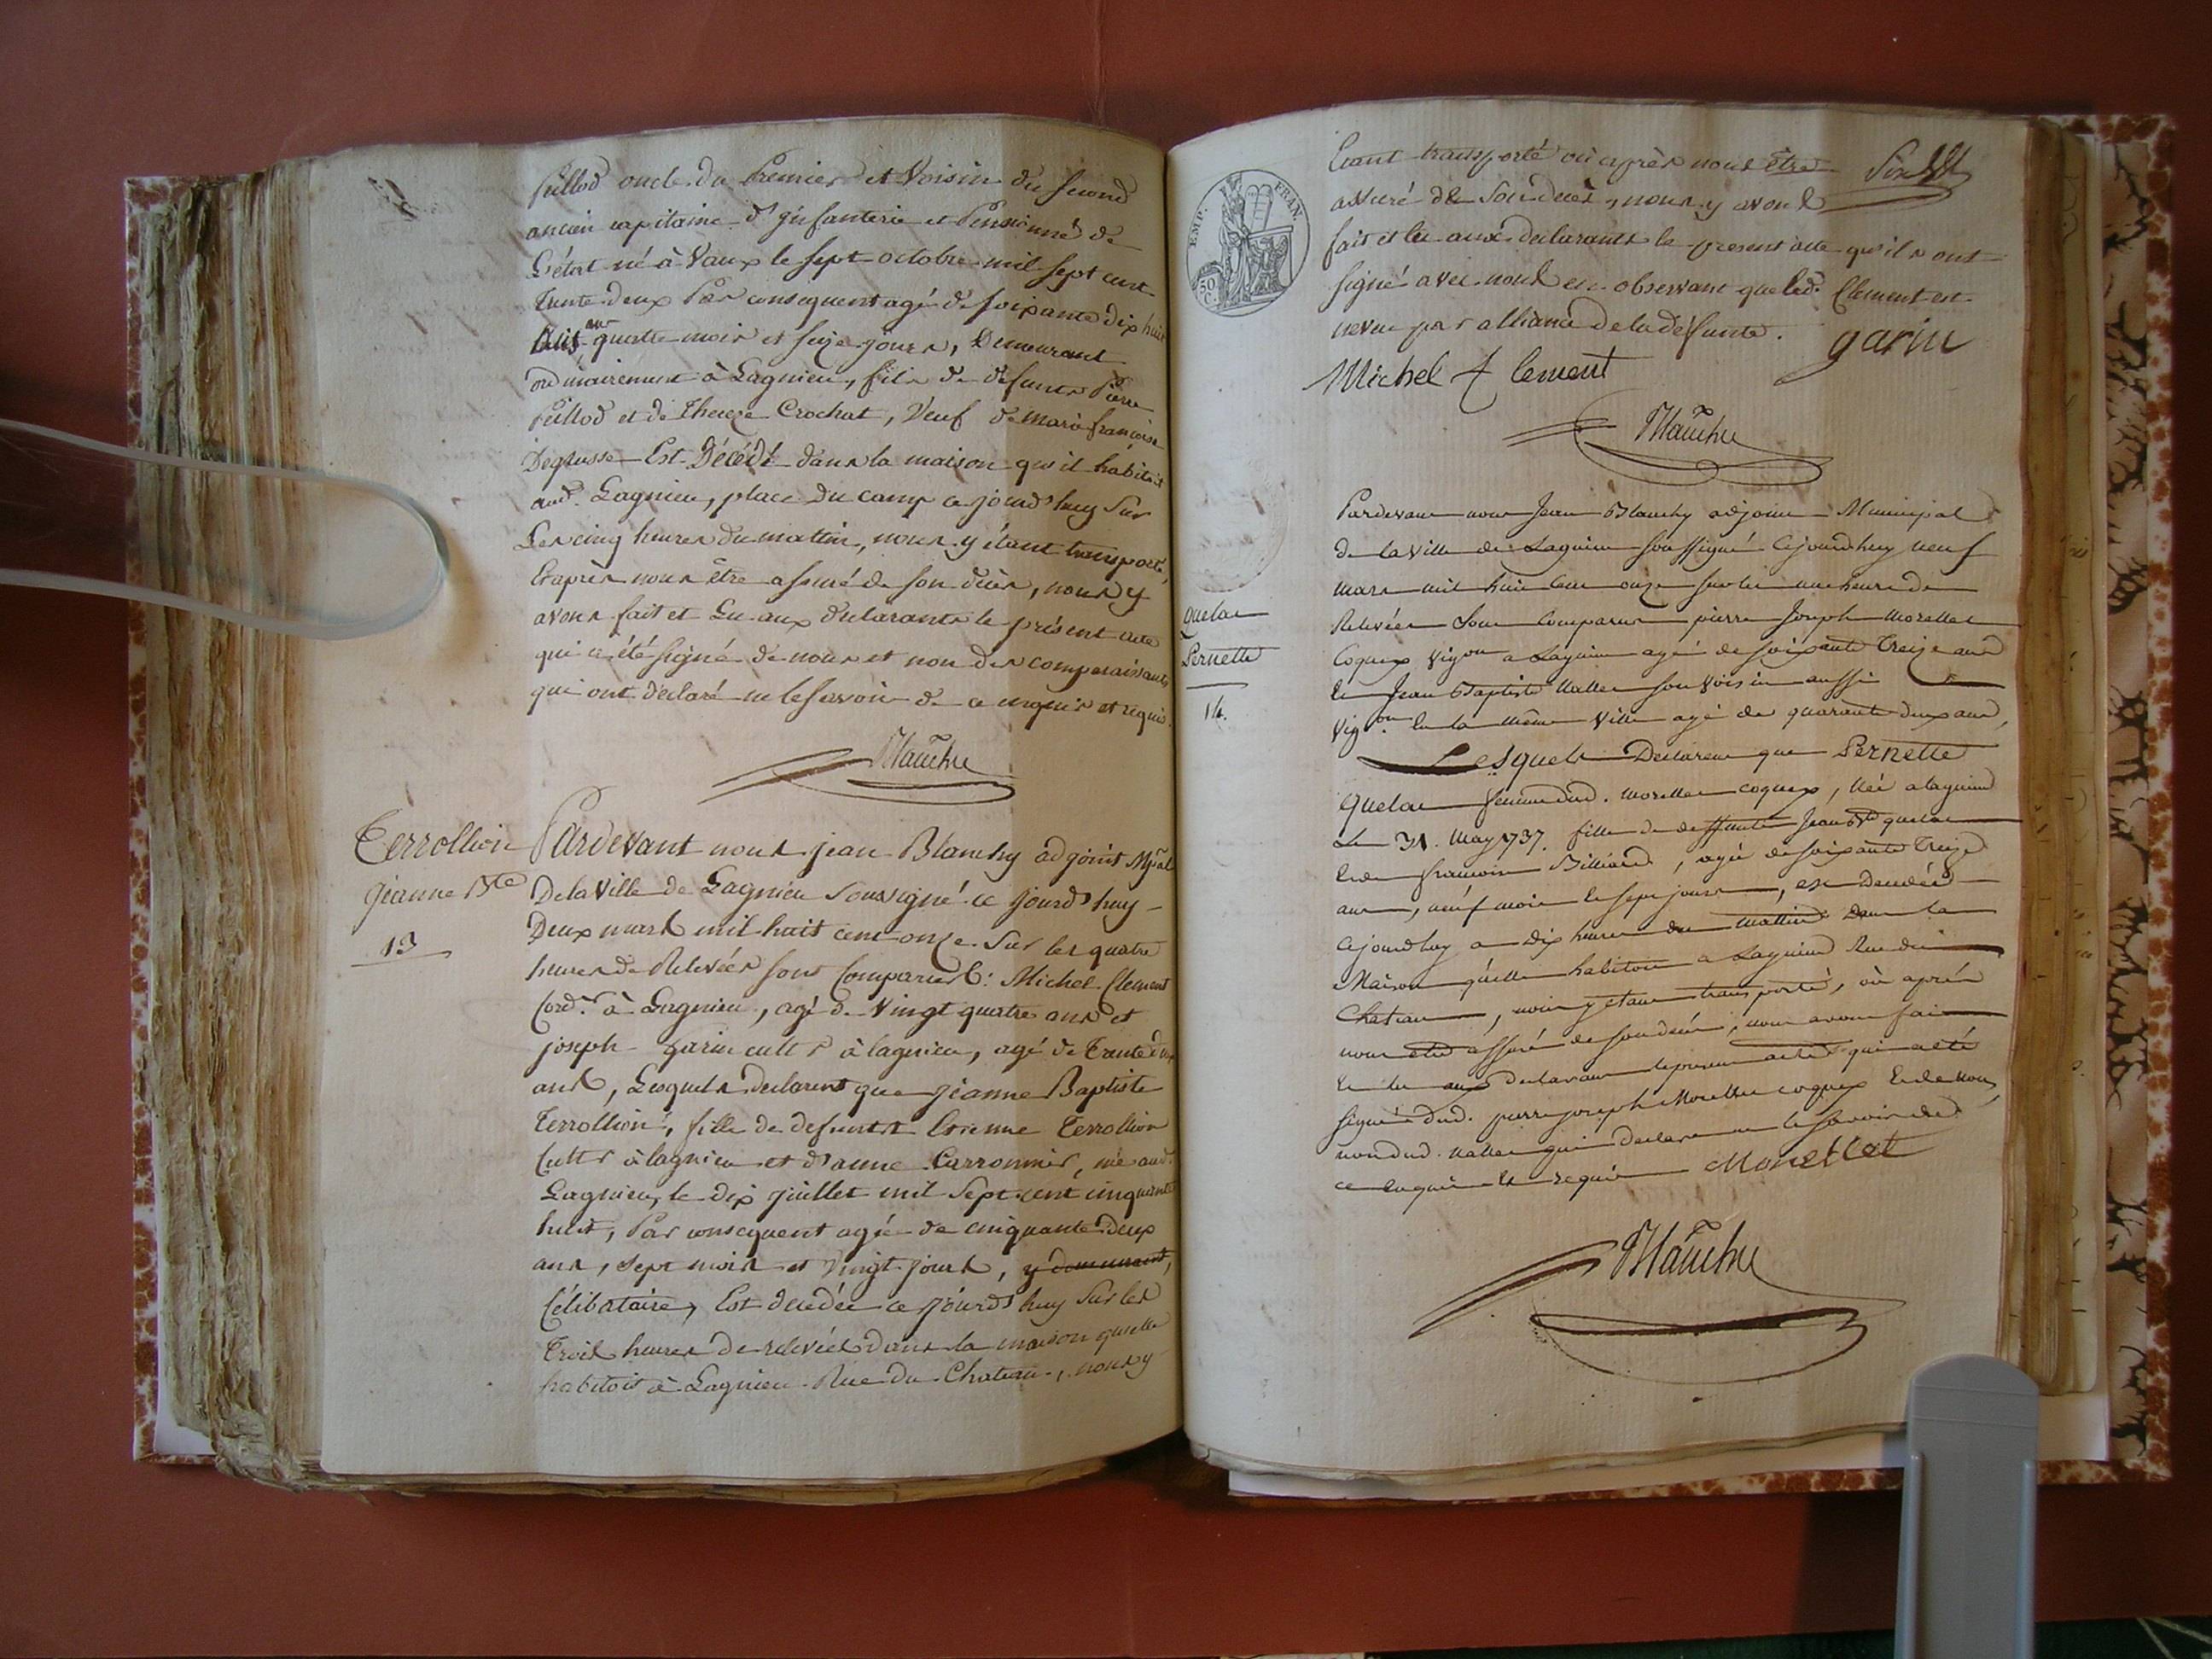 Pillod oncle du Premier et Voisin du second
ancien capitaine d'infanterie et Pensionné de
L'état né à Vaux le sept octobre mil sept cent
trente deux Par consequent agé de soixante dix huit
ans quatre mois et seize jours, Demeurant
ordinairement à Lagnieu, fils de defunts Pierre
Pillod et de Therese Crochat, Veuf de marie françoise
Degrusse Est Décédé dans la maison qu'il habitoit
aud. Lagnieu, place du camp ce jourd'huy Sur
Les cinq heures du mattin, nous y étant transporté,
Et après nous être assuré de son décès, nous y
avons fait et Lu aux declarants le présent acte
qui a été signé de nous et non des comparaissants
qui ont déclaré ne le savoir de ce enquis et requis.
Blanchy
Terrollion
Jeanne Bte
13
Pardevant nous jean Blanchy adjoint Mpal
De la Ville de Lagnieu soussigné ce jourd'huy
Deux mars mil huit cent onze sur les quatre
heures de Relevées sont Comparus: Michel Clement
Cordr. à Lagnieu, agé de Vingt quatre ans et
joseph garin cultr à lagnieu, agé de trente deux
ans, Lesquels declarent que jeanne Baptiste
Terrollion, fille de defunts Etienne Terrollion
Cultr à lagnieu et d'anne Carronnier, née aud.
Lagnieu, le dix juillet mil sept cent cinquante
huit, Par consequent agée de cinquante deux
ans, sept mois et Vingt jours, y demeurant,
Célibataire, Est decedée ce jourd'huy sur les
trois heures de relevées dans la maison qu'elle
habitoit à Lagnieu Rue du Chateau, nous y
EMP. FRAN.
50 C.
étant transporté où après nous être
assuré de son decès, nous y avons
fait et lu aux declarants le present acte qu'ils ont
signé avec nous en observant que led. Clement est
neveu par alliance de la défunte. garin
Michel Clement
Blanchy
quelau
Pernette
14.
Pardevant nous Jean Blanchy adjoint Municipal
de la Ville de Lagnieu soussigné Cejourdhuy neuf
mars mil huit cent onze sur les une heure de
Relevées sont Comparus pierre Joseph Morellet
Coqueux Vigon a Lagnieu agé de soixante treize ans
et Jean Baptiste Nallet son voisin aussi
Vigon. en la même Ville agé de quarante deux ans,
Lesquels Declarent que Pernette
quelau femme dud. morellet coqueux, Née a lagnieu
Le 31. May 1737. fille de deffunts Jean Bte quelau
et de francoise Billiard, agée de soixante treize
ans, neuf mois et sept jours, est decedée
cejourdhuy a dix heures du mattin dans la
Maison quelle habitoit a Lagnieu Rue du
Chateau, nous y etant transporté, où après
nous etre assuré de son decés, nous avons fait
et lu aux declarans le present acte qui a été
signé dud. pierre joseph Morellet coqueux et de nous,
non dud. Nallet qui declare ne le savoir de
ce enquis et requis Morellet
Blanchy